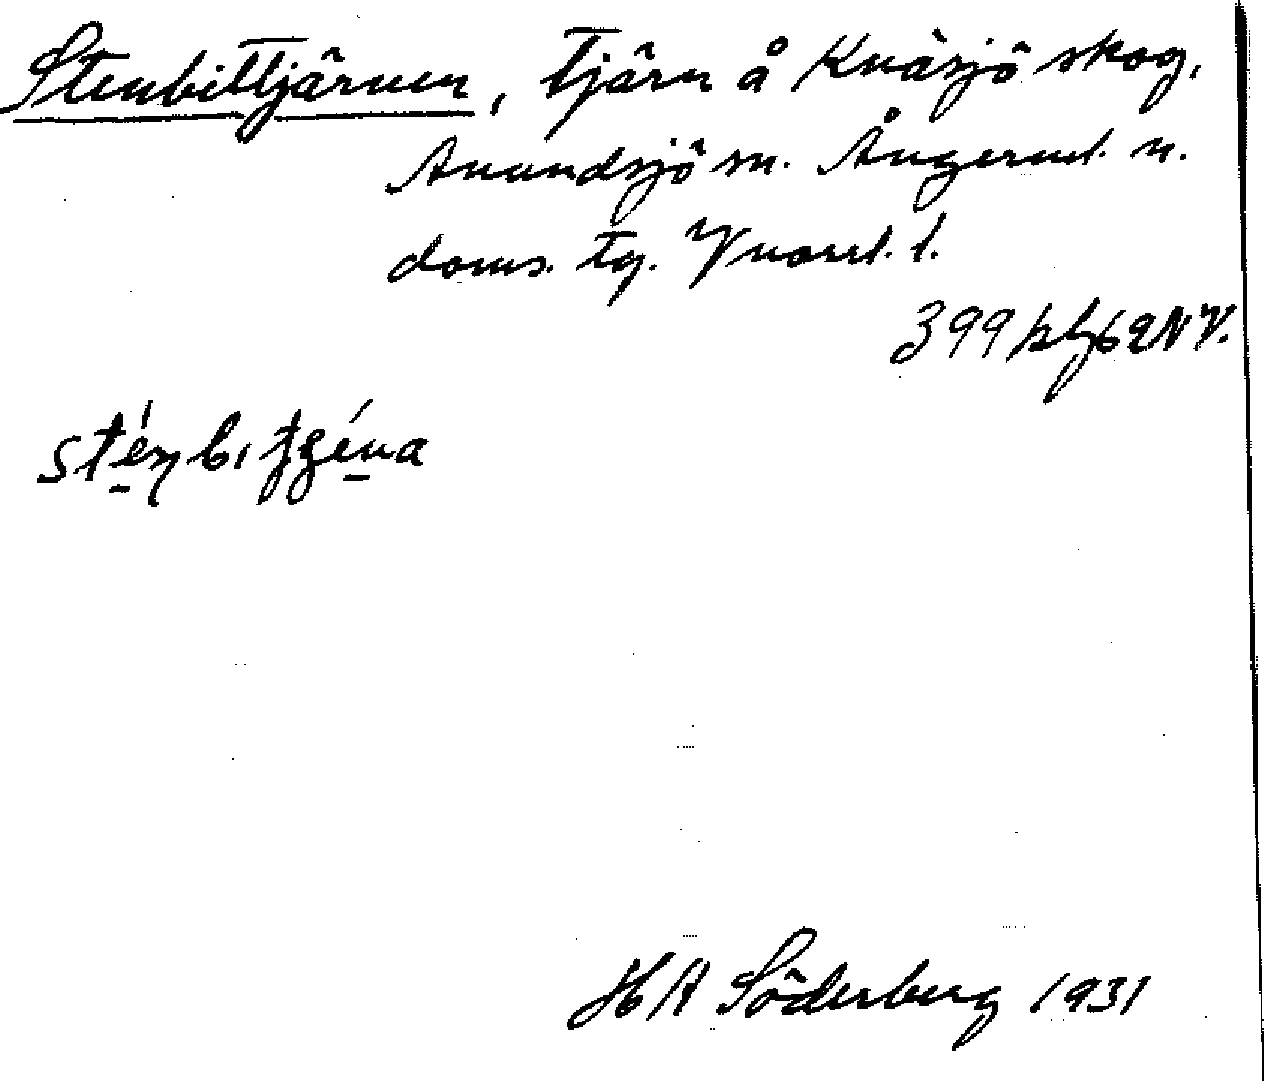 Stenbittjärnen, tjärn å Knäsjö skog,
Anundsjö sn. Ångerml. n.
doms. tg. Y norrl. l.
399 62 NV.
H A Söderberg 1931